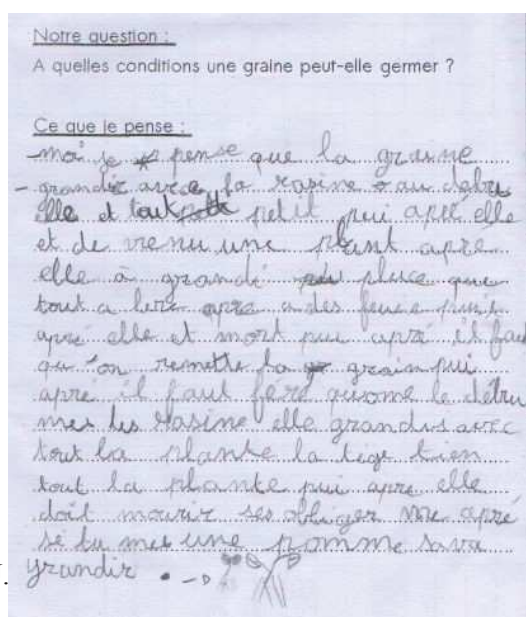 Notre question :
A quelles conditions une graine peut-elle germer ?
Ce que je pense :
moi je pense que la graine
grandir avec la rasine au debu
elle et tout petit pui apré elle
et de venu une plant apré
elle à grandi pluce que
tout a lere apre a des feuce puis
apré elle et mort pui apré il fau
qu'on remette la grain pui
apré il faut fére quome le debu
mes les rasine elle grandis avec
tout la plante la tige tien
tout la plante pui apre elle
doit mourir ses obliger me apré
se tu mes une pomme sava
grandir